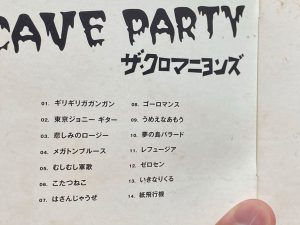 CAVE PARTY
ザ・クロマニヨンズ
01. ギリギリガガンガン
02. 東京ジョニー ギター
03. 悲しみのロージー
04. メガトンブルース
05. むしむし軍歌
06. こたつねこ
07. はさんじゃうぜ
08. ゴーロマンス
09. うめえなあもう
10. 夢の島バラード
11. レフュージア
12. ゼロセン
13. いきなりくる
14. 紙飛行機